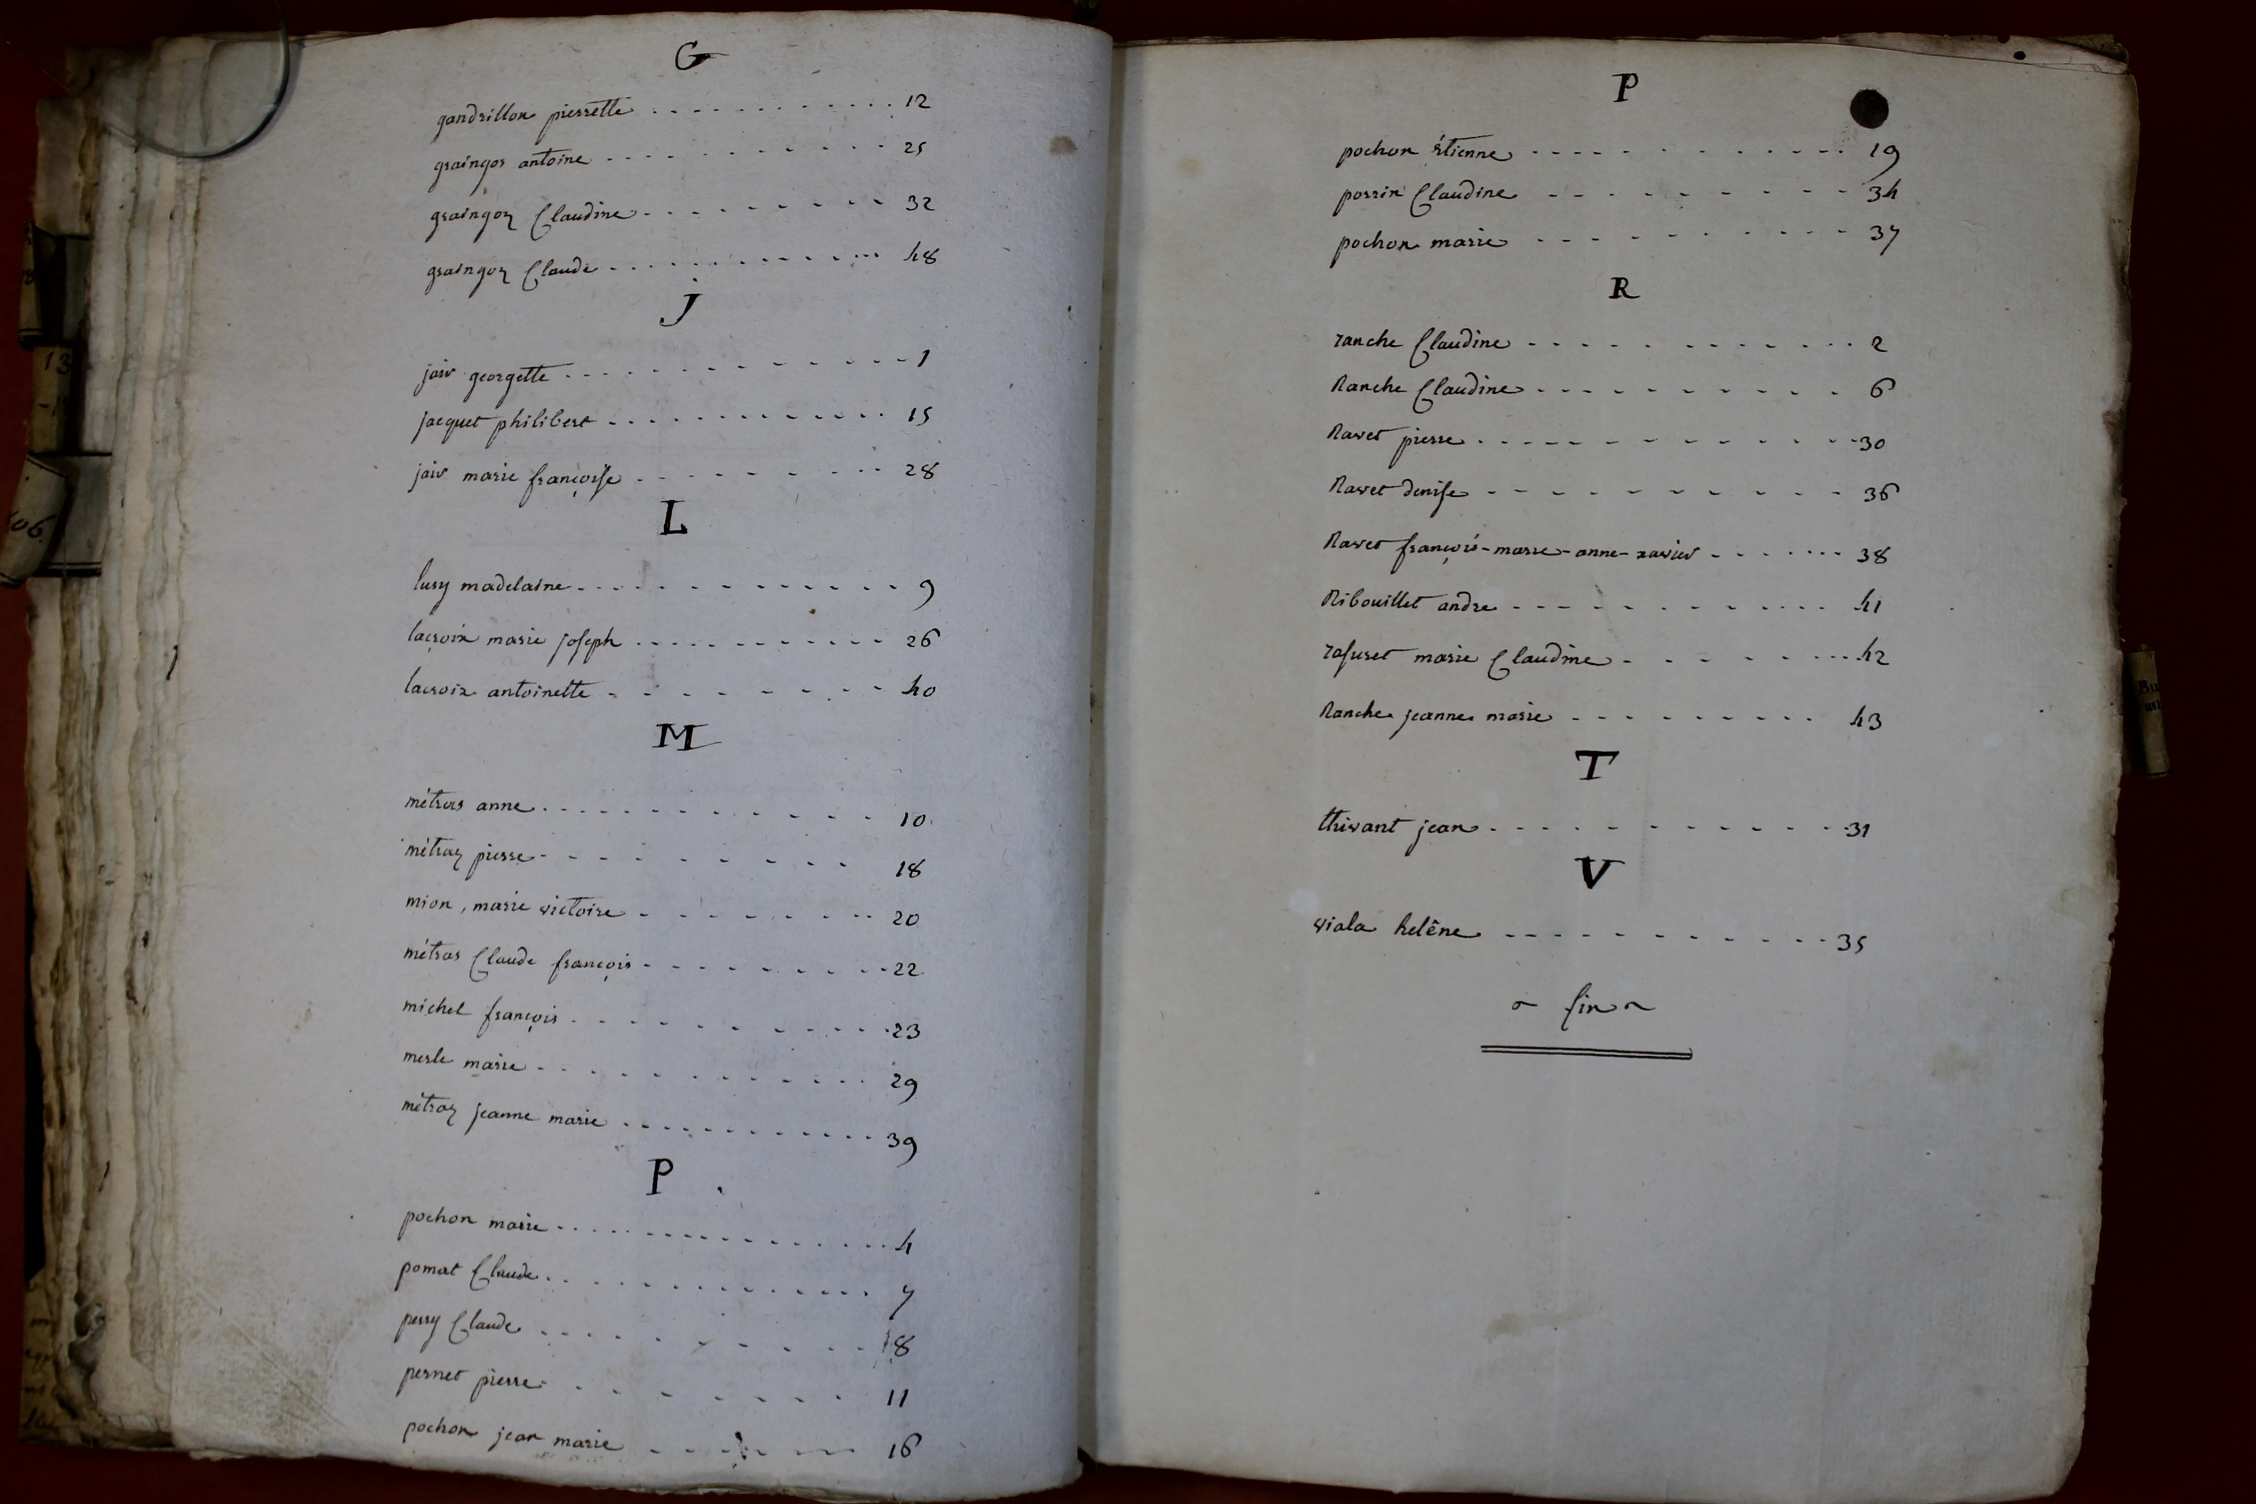 G
gandrillon pierrette 12
graingor antoine 25
graingoz Claudine 32
graingoz Claude 48
J
jaiv georgette 1
jacquet philibert 15
jaiv marie françoise 28
L
lusy madelaine 9
lacroix marie joseph 26
lacroix antoinette 40
M
métras anne 10
métraz pierre 18
mion, marie victoire 20
métras Claude françois 22
michel françois 23
merle marie 29
métraz jeanne marie 39
P
pochon marie 4
pomat Claude 7
perry Claude 8
pernet pierre 11
pochon jean marie 16
P
pochon étienne 19
perrin Claudine 34
pochon marie 37
R
ranche Claudine 2
Ranche Claudine 6
Ravet pierre 30
Ravet denise 36
Ravet françois-marie-anne-xavier 38
Ribouillet andre 41
rasuret marie Claudine 42
Ranche jeanne marie 43
T
thivant jean 31
V
viala helêne 35
fin
13
106.